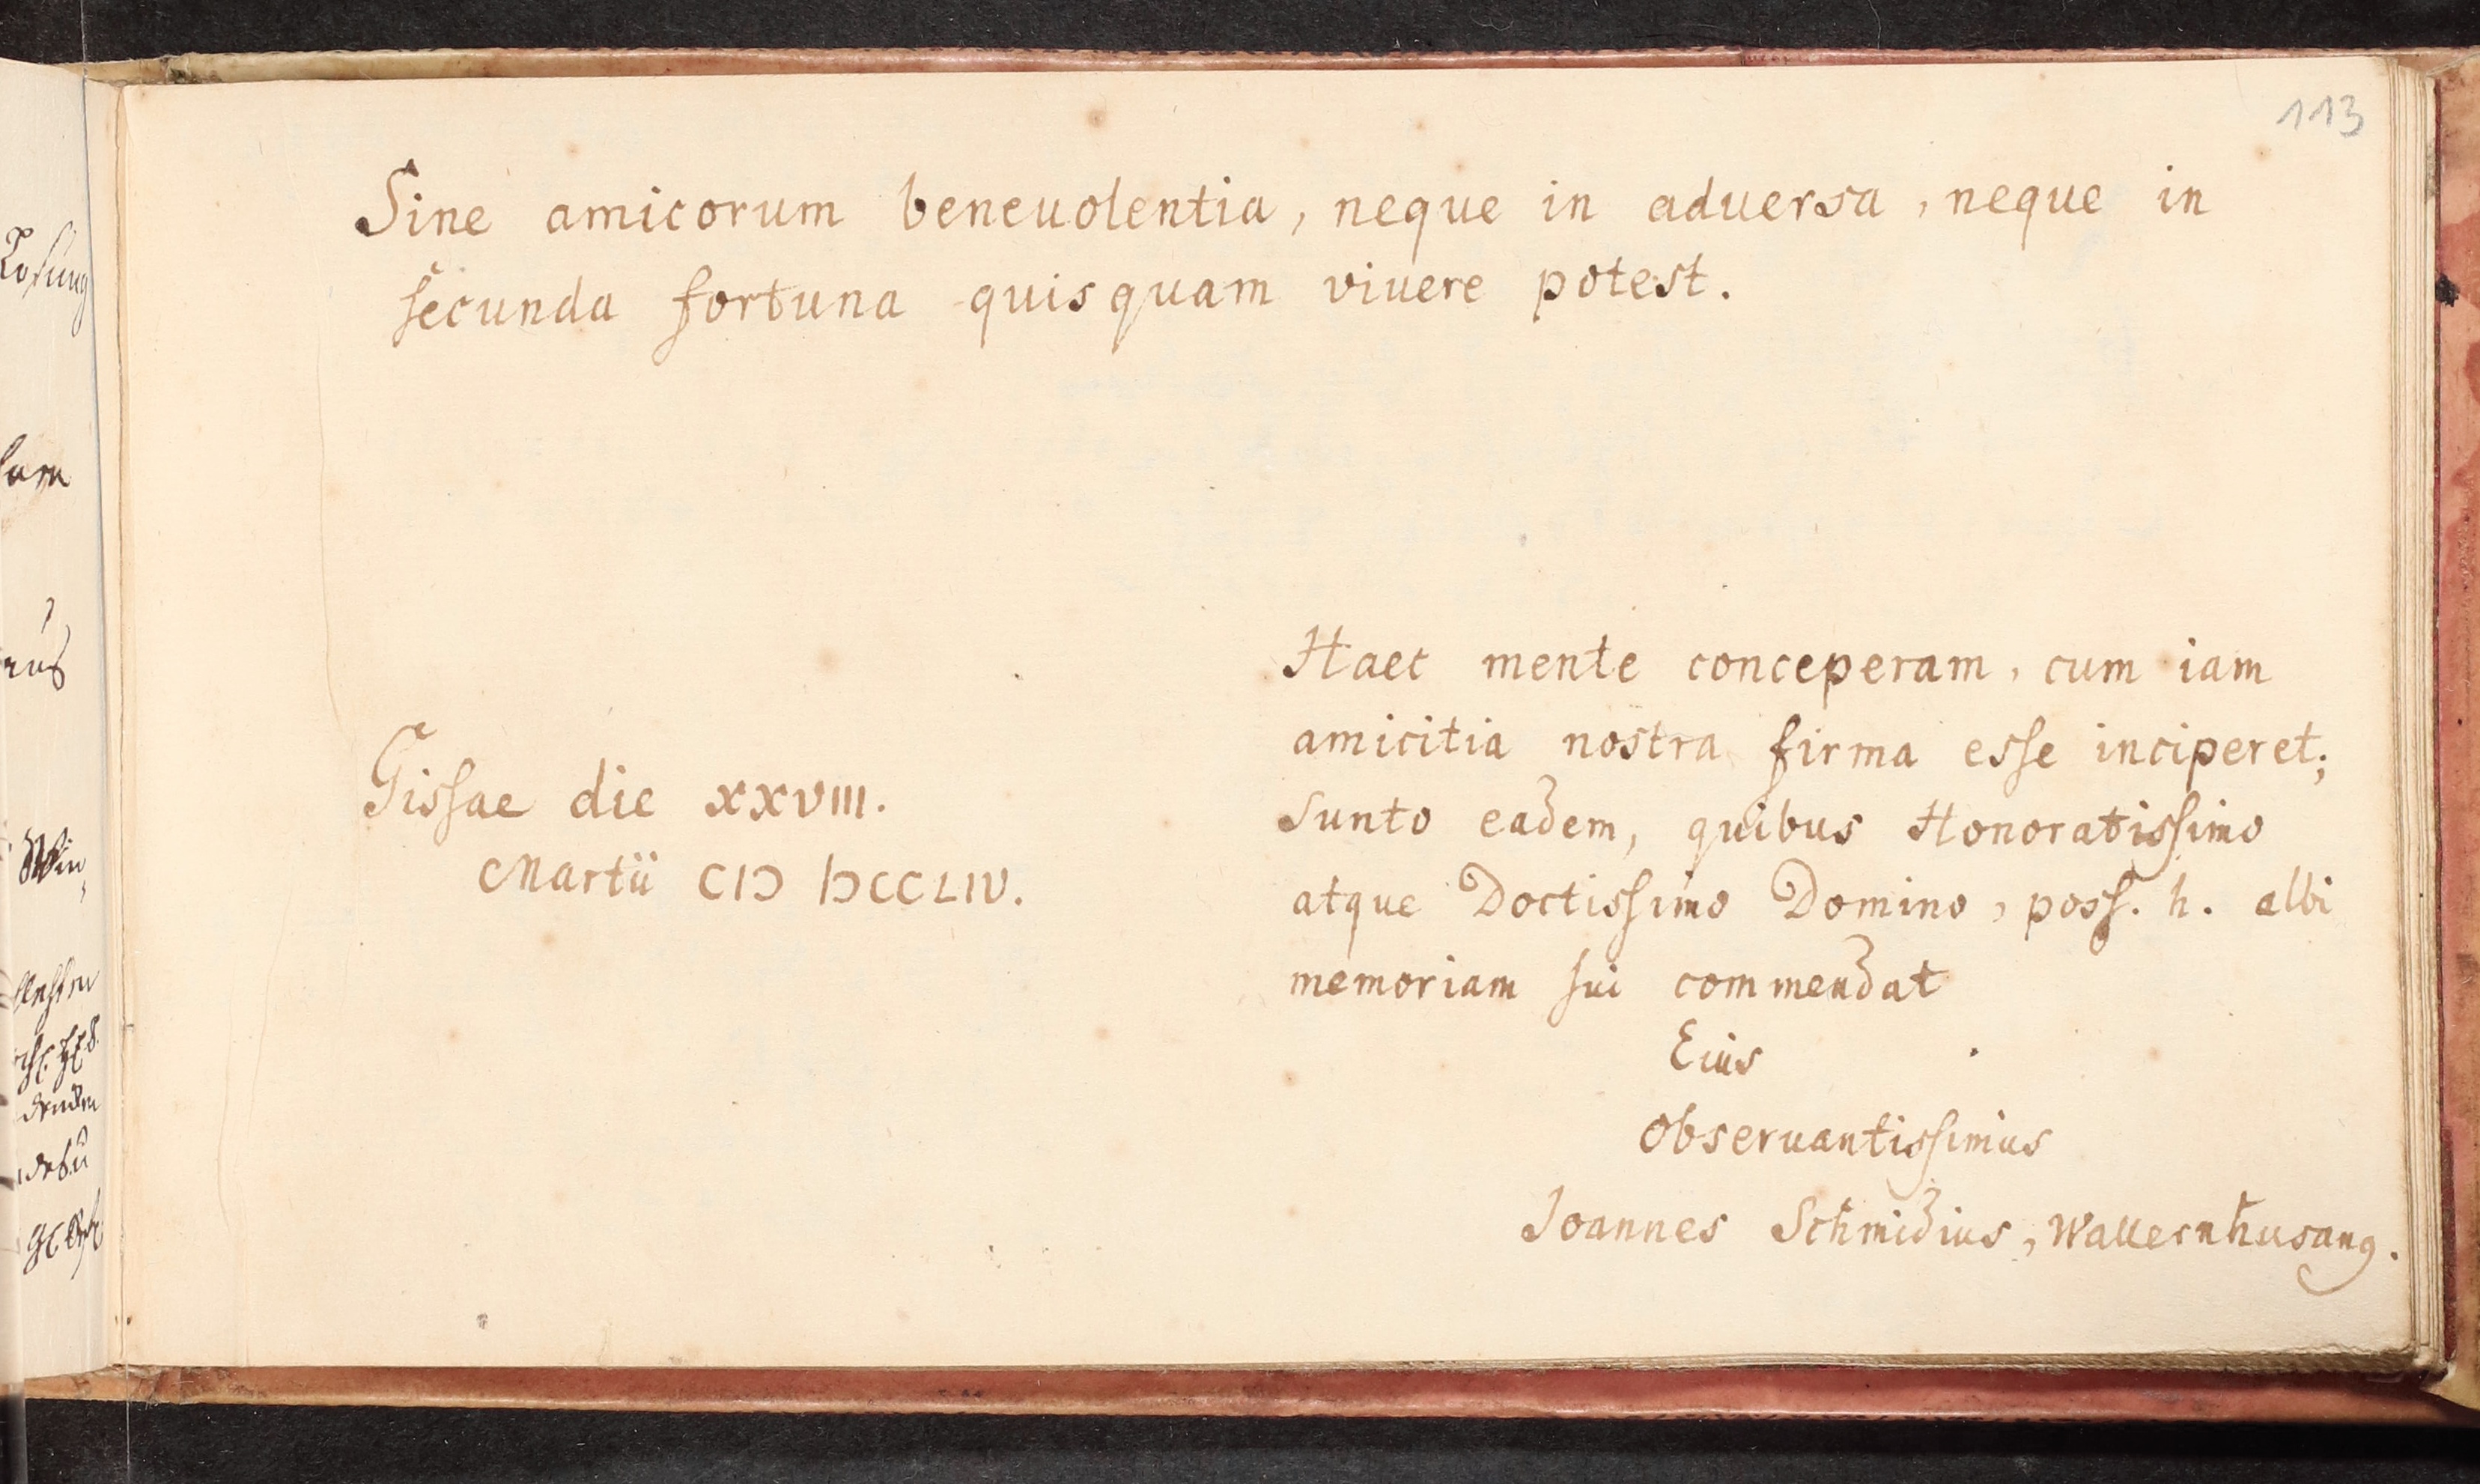 113
Sine amicorum beneuolentia, neque in aduersa, neque in
secunda fortuna quisquam viuere potest.
Gissae die XXVIII.
Martii CIↃ IↃCCLIV.
Haec mente conceperam, cum iam
amicitia nostra firma esse inciperet;
sunto eadem, quibus Honoratissimo
atque Doctissimo Domino, poss. h. albi
memoriam sui commendat
Eius
observantissimus
Joannes Schmidius, Wallernhusang.